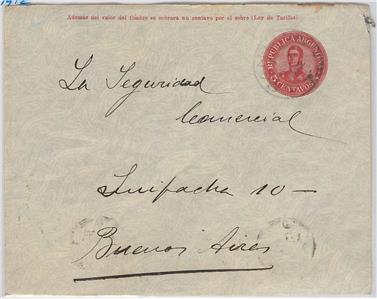 1912
Ademas del valor del timbre se cobrara un centavo por el sobre (Ley de Tarifas)
REPUBLICA ARGENTINA
5 CENTAVOS
La Seguridad
Comercial
Suipacha 10 —
Buenos Aires